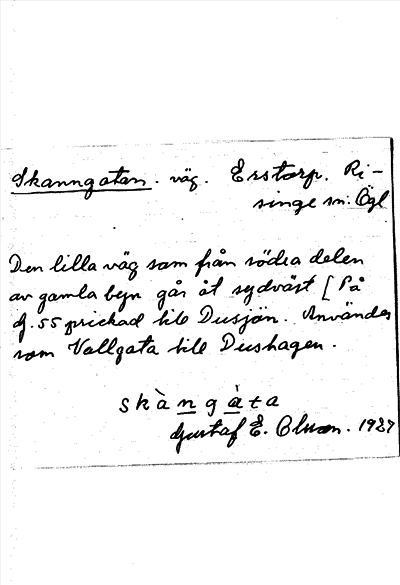 Skanngatan. väg. Erstorp. Ri-
singe sn. Ögl
Den lilla väg som från södra delen
av gamla byn går åt sydväst [På
g. 55 prickad till Dusjön. Användes
som Vallgata till Dushagen.
skàngàta
Gustaf E. Olsson. 1927